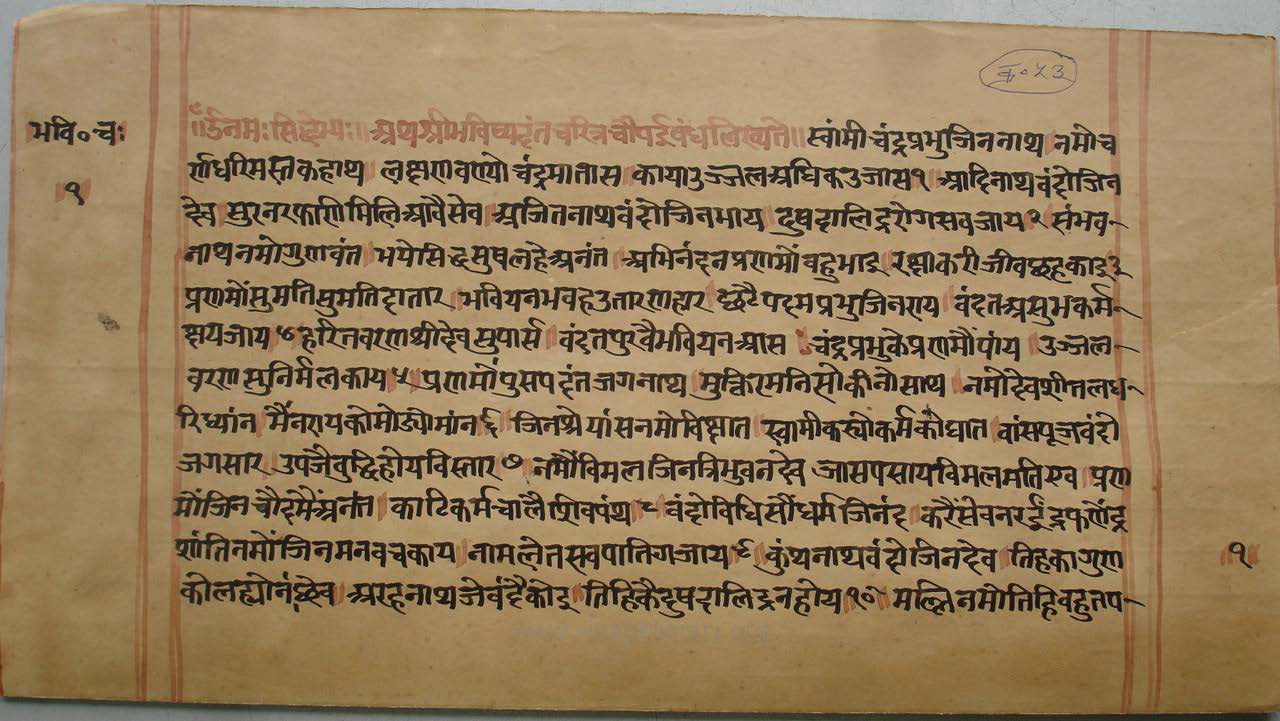 क्र॰ ५३
भवि॰ च॰
१
॥ॐनमःसिद्धेभ्यः॥ अथश्रीभविष्यदंतचरित्रचौपईबंधलिख्यते॥ स्वांमीचंद्रप्रभुजिननाथ नमोच
र्णधरिमस्तकहाथ लक्षणवण्यो चंद्रमातास कायाउज्जलअधिकउजास१ आदिनाथबंदोजिन
देव सुरनरफणीमिलिआवैसेव अजितनाथबंदोजिनमाय दुषदालिद्ररोगसबजाय२ संभव-
नाथनमोगुणवंत भयेसिद्धसुषलहेअनंत अभिनंदनप्रणमौंबहुभाइ रक्षाकरीजीवछहकाइ३
प्रणमौंसुमतिसुमतिदातार भवियनभवहउतारणहार छटैपदमप्रभुजिनराय बंदतअसुभकर्म-
क्षयजाय ४ हरितवरणश्रीदेवसुपार्स बंदतपुरवैभवियनआस चंद्रप्रभुकेप्रणमौंपांय उज्जल-
वरणसुनिर्मलकाय ५ प्रणमौंपुसपदंतजगनाथ मुक्तिरमनिसोकीनोसाथ नमोदेवशीतलध-
रिध्यांन मैंनरायकोमोड्योमांन६ जिनश्रेयांसनमोविक्षात स्वामीकस्योकर्मकोघात वांसपूजबंदो
जगसार उपजैबुद्धिहोयविस्तार ७ नमौंविमलजिनत्रिभुवनदेव जासपसायविमलमतिएव प्रण
मौंजिनचौदमैंअनंत काटिकर्मचालैशिवपंथ ८ बंदोविधिसौंधर्मजिनंद करैंसेवनरइंद्रफणेंद्र
शांतिनमौंजिनमनवचकाय नामलेतसवपातिगजाय ९ कुंथनाथबंदोजिनदेव तिहकागुण
कोलह्योनंछेव अरहनाथजेबंदैकोइ तिहिकैदुषदालिद्रनहोय१० मल्लिनमोतिहिबहुतप-
१